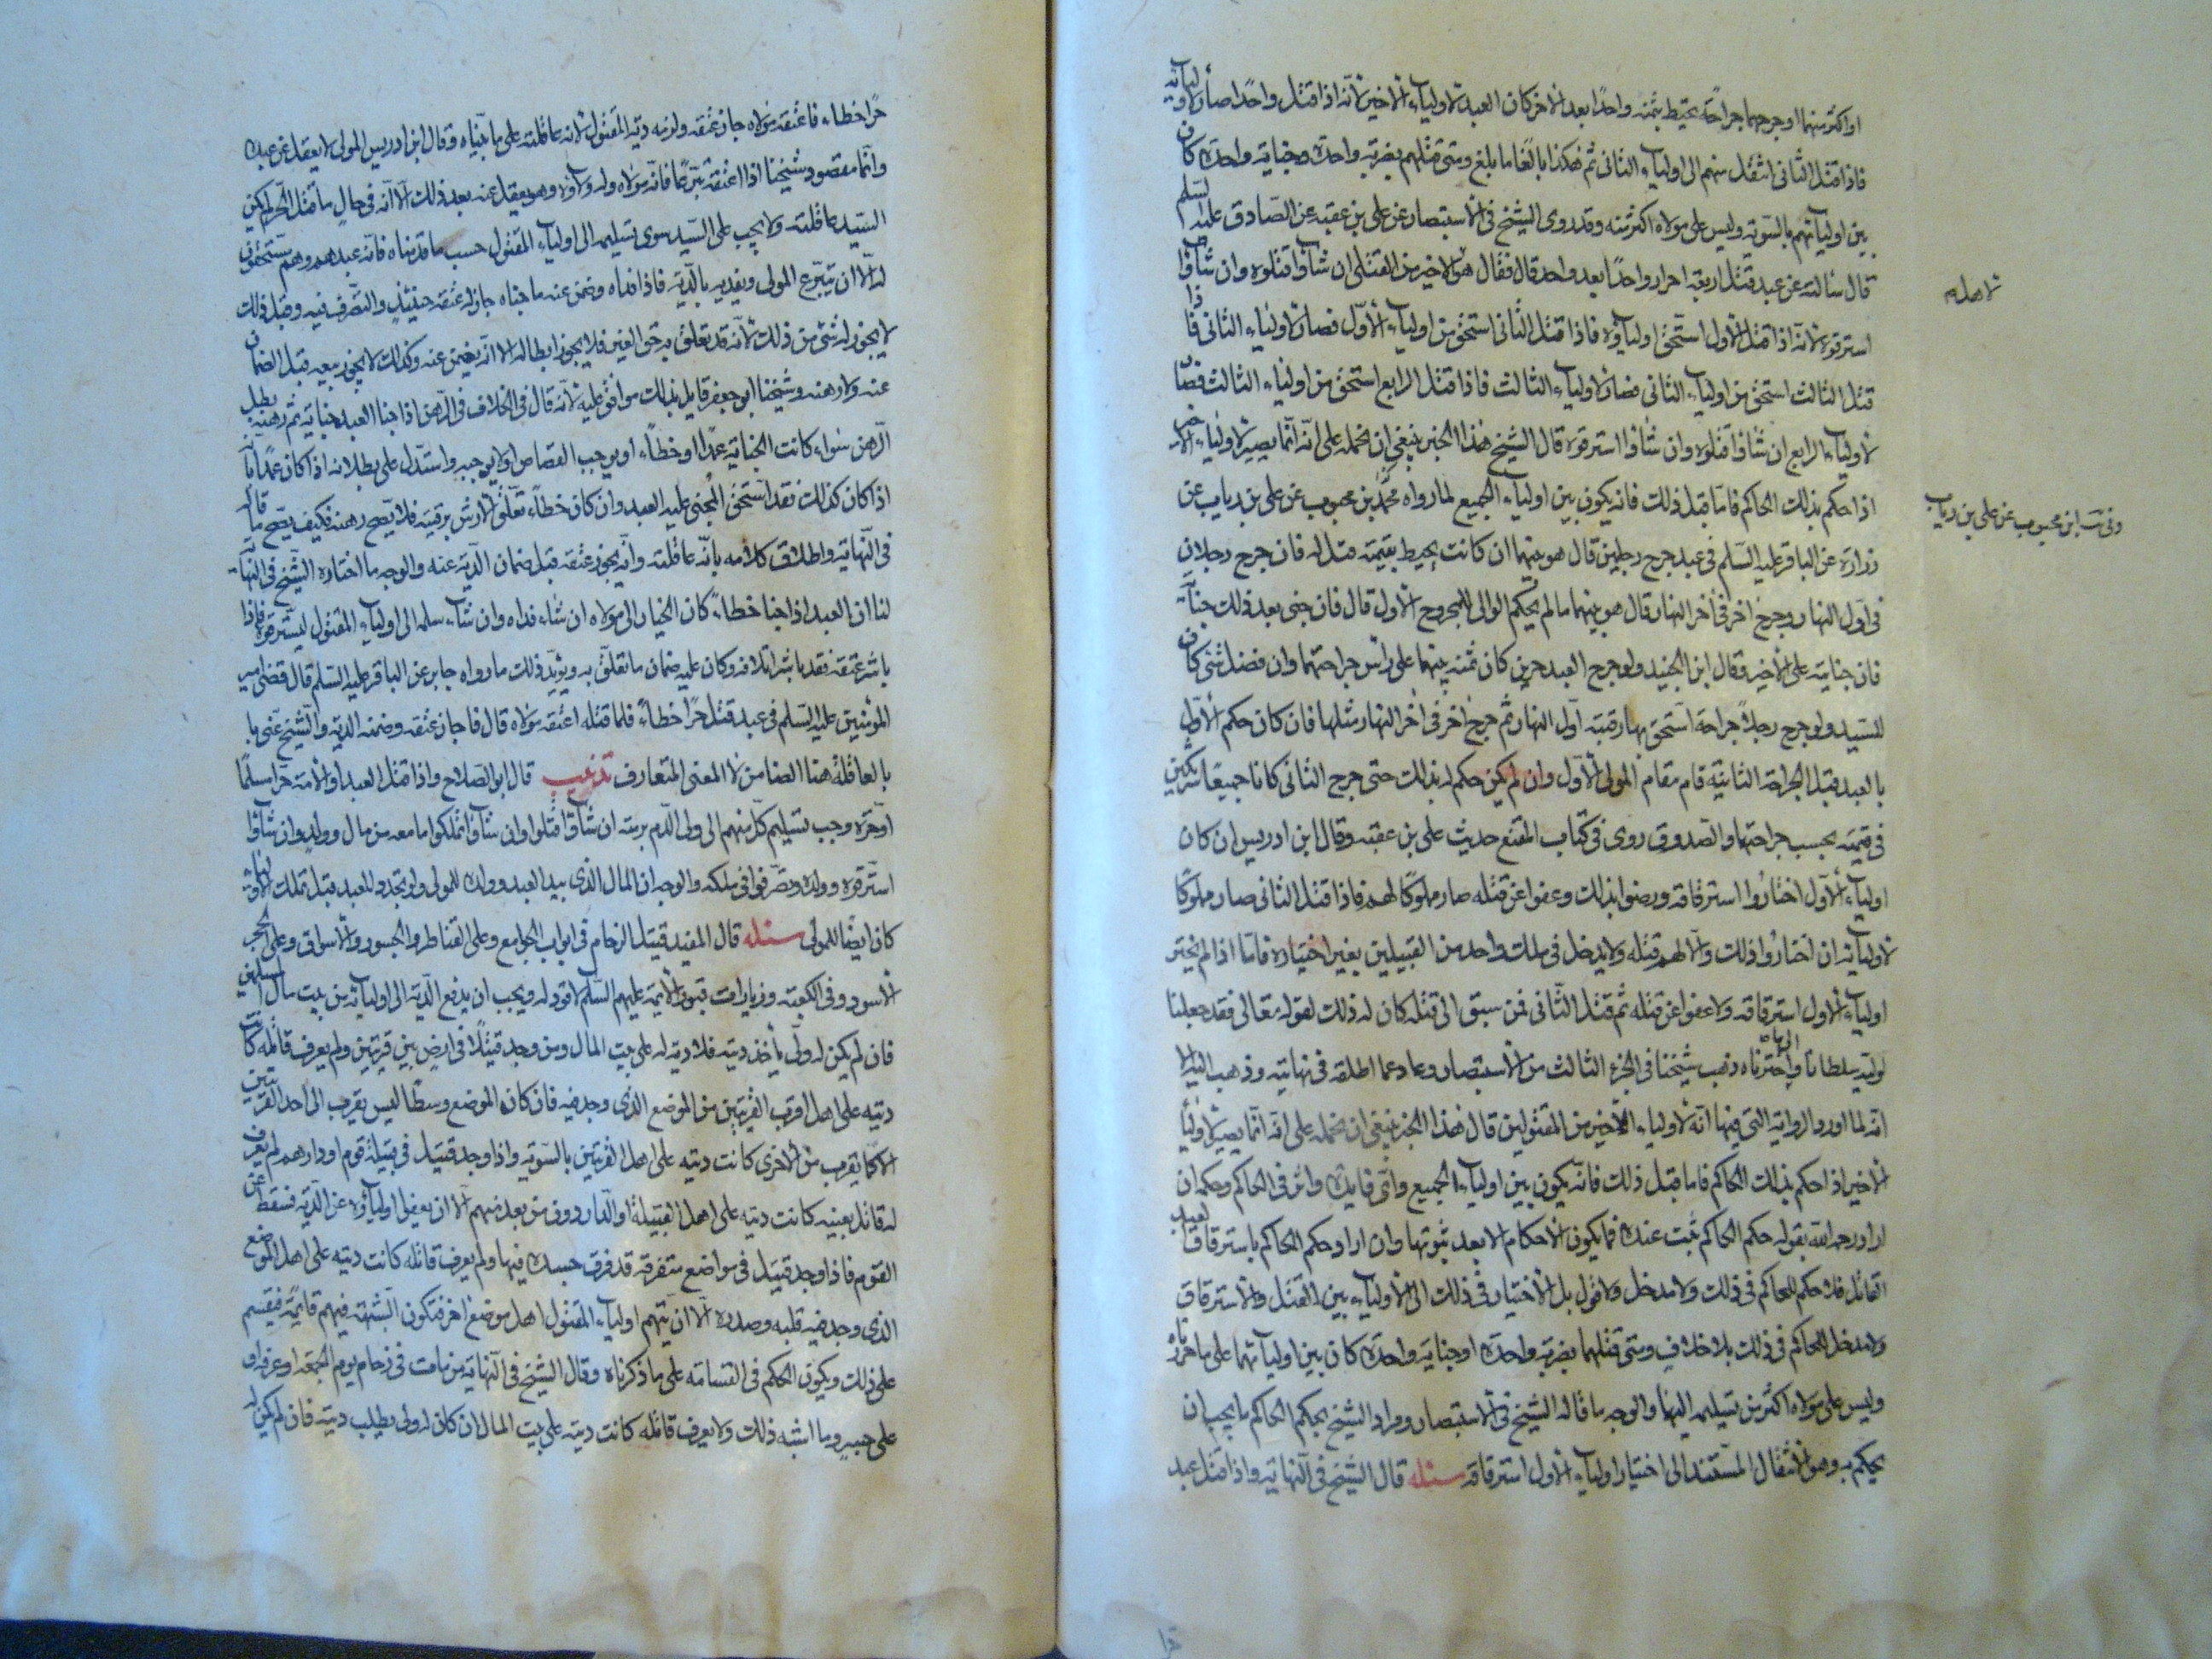 او اكثر منهما او جرحهما جراحة يحيط بثمنه واحدا بعد الاخر كان العبد لاولياء الاخير لانه اذا قتل واحدا صار لاوليائه
فاذا قتل الثاني انتقل منهم الى اولياء الثاني ثم هكذا بالغا ما بلغ ومتى قتلهم بضربة واحدة وجناية واحدة كان
بين اوليائهم بالسوية وليس على مولاه اكثر منه وقد روى الشيخ في الاستبصار عن علي بن عقبه عن الصادق عليه السلم
قال سالته عن عبد قتل اربعة احرار واحدا بعد واحد قال فقال هو للاخير من القتلى ان شاؤا قتلوه وان شاؤا
لاهله
استرقوه لانه اذا قتل الاول استحق اولياؤه فاذا قتل الثاني استحق من اولياء الاول فصار لاولياء الثاني فاذا
قتل الثالث استحق من اولياء الثاني فصار لاولياء الثالث فاذا قتل الرابع استحق من اولياء الثالث فصار
لاولياء الرابع ان شاؤا قتلوه وان شاؤا استرقوه قال الشيخ هذا الخبر ينبغي ان نحمله على انه انما يصير لاولياء الاخير
اذا حكم بذلك الحاكم فاما قبل ذلك فانه يكون بين اولياء الجميع لما رواه محمد بن محبوب عن علي بن رياب عن
ابن محبوب عن علي بن رياب
زرارة عن الباقر عليه السلم في عبد جرح رجلين قال هو بينهما ان كانت يحيط بقيمته قيل له فان جرح رجلا
في اول النهار وجرح اخر في اخر النهار قال هو بينهما ما لم يحكم الوالي للمجروح الاول قال فان جنى بعد ذلك جناية
فان جنايته على الاخير وقال ابن الجنيد ولو جرح العبد حرين كان ثمنه بينهما على راس جراحتهما وان فضل شئ كان
للسيد ولو جرح رجلا جراحة استحق بها رقبته اول النهار ثم جرح اخر في اخر النهار مثلها فان كان حكم الاول
بالعبد قبل الجراحة الثانية قام مقام المولى الاول وان لم يكن حكم له بذلك حتى جرح الثاني كانا جميعا شريكين
في قيمته بحسب جراحتهما والصدوق روى في كتاب المقنع حديث علي بن عقبه وقال ابن ادريس ان كان
اولياء الاول اختاروا استرقاقه ورضوا بذلك وعفوا عن قتله صار مملوكا لهم فاذا قتل الثاني صار مملوكا
لاوليائه ان اختاروا ذلك والا لهم قتله ولا يدخل في ملك واحد من القبيلين بغير اختياره فاما اذا لم يختر
اولياء الاول استرقاقه ولا عفوا عن قتله ثم قتل الثاني فمن سبق الى قتله كان له ذلك لقوله تعالى فقد جعلنا
لوليه سلطانا والى ما اخترناه ذهب شيخنا في الجزء الثالث من الاستبصار وعاد عما اطلقه في نهايته وذهب اليه الا
انه لما اورد الرواية التي فيها انه لاولياء الاخير من المقتولين قال هذا الخبر ينبغي ان نحمله على انه انما يصير لاولياء
الاخير اذا حكم بذلك الحاكم فاما قبل ذلك فانه يكون بين اولياء الجميع واي فايدة واثر في الحاكم وحكمه ان
اراد رحمه الله بقوله حكم الحاكم ثبت عنده فما يكون الاحكام الا بعد ثبوتها وان اراد حكم الحاكم باسترقاق العبد
القاتل فلا حكم للحاكم في ذلك ولا مدخل ولا قول بل الاختيار في ذلك الى الاولياء بين القتل والاسترقاق
ولا مدخل للحاكم في ذلك بلا خلاف ومتى قتلهما بضربة واحدة او جناية واحدة كان بين اوليائهما على ما حررناه
وليس على مولاه اكثر من تسليمه اليهما والوجه ما قاله الشيخ في الاستبصار ومراد الشيخ بحكم الحاكم ما يجب ان
يحكم به وهو الانتقال المستند الى اختيار اولياء الاول استرقاقه مسئله قال الشيخ في النهاية واذا قتل عبد
حرا خطاء فاعتقه مولاه جاز عتقه ولزمه دية المقتول لانه عاقلته على ما بيناه وقال ابن ادريس المولى لا يعقل عن عبده
وانما مقصود شيخنا اذا اعتقه تبرعا فانه مولاه وله ولاؤه وهو يعقل عنه بعد ذلك الا انه في حال ما قتل الحر لم يكن
السيد عاقلته ولا يجب على السيد سوى تسليمه الى اولياء المقتول حسب ما قدمناه فانه عبدهم وهم مستحقون
له الا ان يتبرع المولى ويفديه بالدية فاذا فداه وضمن عنه ما جناه جاز له عتقه حينئذ والتصرف فيه وقبل ذلك
لا يجوز له شئ من ذلك لانه قد تعلق به حق الغير فلا يجوز ابطاله الا انه يضمن عنه وكذلك لا يجوز بيعه قبل الضمان
عنه ولا رهنه وشيخنا ابو جعفر قايل بذلك موافق عليه لانه قال في الخلاف في الرهن اذا جنا العبد جناية ثم رهنه بطل
الرهن سواء كانت الجناية عمدا او خطاء او يوجب القصاص او لا يوجبه واستدل على بطلانه اذا كان عمدا بانه
اذا كان كذلك فقد استحق المجني عليه العبد وان كان خطاء تعلق الارش برقبته فلا يصح رهنه فكيف يصح ما قاله
في النهاية واطلاق كلامه بانه عاقلته وانه يجوز عتقه قبل ضمان الدية عنه والوجه ما اختاره الشيخ في النهاية
لنا ان العبد اذا جنا خطاء كان الخيار الى مولاه ان شاء فداه وان شاء سلمه الى اولياء المقتول ليسترقوه فاذا
باشر عتقه فقد باشر اتلافه وكان عليه ضمان ما تعلق به ويؤيد ذلك ما رواه جابر عن الباقر عليه السلم قال قضى امير
المؤمنين عليه السلم في عبد قتل حرا خطاء فلما قتله اعتقه مولاه قال فاجاز عتقه وضمنه الدية والشيخ عنى با
بالعاقلة هنا الضامن لا المعنى المتعارف تذنيب قال ابو الصلاح واذا قتل العبد او الامة حرا مسلما
او حرة وجب تسليم كل منهم الى ولي الدم برمته ان شاؤا قتلوا وان شاؤا تملكوا ما معه من مال وولد وان شاؤا
استرقوه وولده وتصرفوا في ملكه والوجه ان المال الذي بيد العبد وولده للمولى ولو تجدد للعبد قبل تملك الاولياء
كان ايضا للمولى مسئله قال المفيد قتيل الزحام في ابواب الجوامع وعلى القناطر والجسور والاسواق وعلى الحجر
الاسود وفي الكعبة وزيارات قبور الائمة عليهم السلم لا قود له ويجب ان يدفع الدية الى اوليائه من بيت مال المسلمين
فان لم يكن له ولي يأخذ ديته فلا دية له على بيت المال ومن وجد قتيلا في ارض بين قريتين ولم يعرف قاتله كانت
ديته على اهل اقرب القريتين من الموضع الذي وجد فيه فان كان الموضع وسطا ليس يقرب الى احد القريتين
الا كما يقرب من الاخرى كانت ديته على اهل القريتين بالسوية واذا وجد قتيل في قبيلة قوم او دارهم لم يعرف
له قاتل بعينه كانت ديته على اهل القبيلة او الدار دون من بعد منهم الا ان يعفو اولياؤه عن الدية فتسقط عن
القوم فاذا وجد قتيل في مواضع متفرقة قد فرق جسده فيها ولم يعرف قاتله كانت ديته على اهل الموضع
الذي وجد فيه قلبه وصدره الا ان يتهم اولياء المقتول اهل موضع اخر فتكون الشبهة فيهم قائمة فيقسم
على ذلك ويكون الحكم في القسامة على ما ذكرناه وقال الشيخ في النهاية من مات في زحام يوم الجمعة او عرفة او
على جسر وما اشبه ذلك ولا يعرف قاتله كانت ديته على بيت المال ان كان له ولي يطلب ديته فان لم يكن له